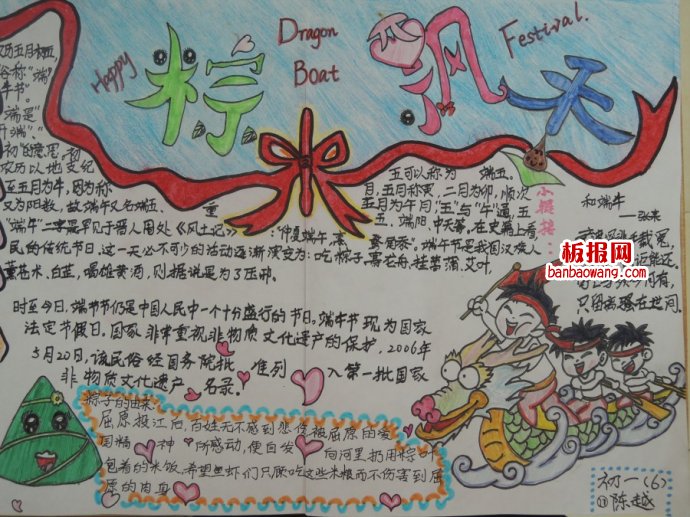 Happy
Dragon
Boat
Festival.
粽
飘
天
农历五月初五,
俗称"端
午节"。
端是"
开端"、"
初"的意思,初
农历以地支纪
五五月为午,因为称
又为阳数,故端午又名端五、
重
五可以称为 端五。
月,五月称
二月为卯,顺次
五月为午月,"五"与"午"通,五
五、端阳、中天等,在史籍上看
"端午"二字最早见于晋人周处《风土记》:"仲夏端午,烹
"。端午节是我国汉族人
民的传统节日,这一天必不可少的活动逐渐演变为:吃粽子,赛龙舟,挂菖蒲、艾叶,
薰苍术、白芷,喝雄黄酒,则据说是为了压邪。
小链接:
和端午
——张耒
只留离骚在世间.
板报网
banbaowang.com
时至今日,端节节仍是中国人民中一个十分盛行的节日,端午节现为国家
法定节假日,国家非常重视非物质文化遗产的保护,2006年
5月20日,该民俗经国务院批 准列 入第一批国家
非物质文化遗产 名录。
粽子的由来:
屈原投江后,百姓无不感到悲伤,被屈原的爱
国精 神 所感动,便自发 向河里扔用粽叶
包着的米饭,希望鱼虾们只顾吃这些米粮而不伤害到屈
原的肉血
初一(6)
⑬陈越